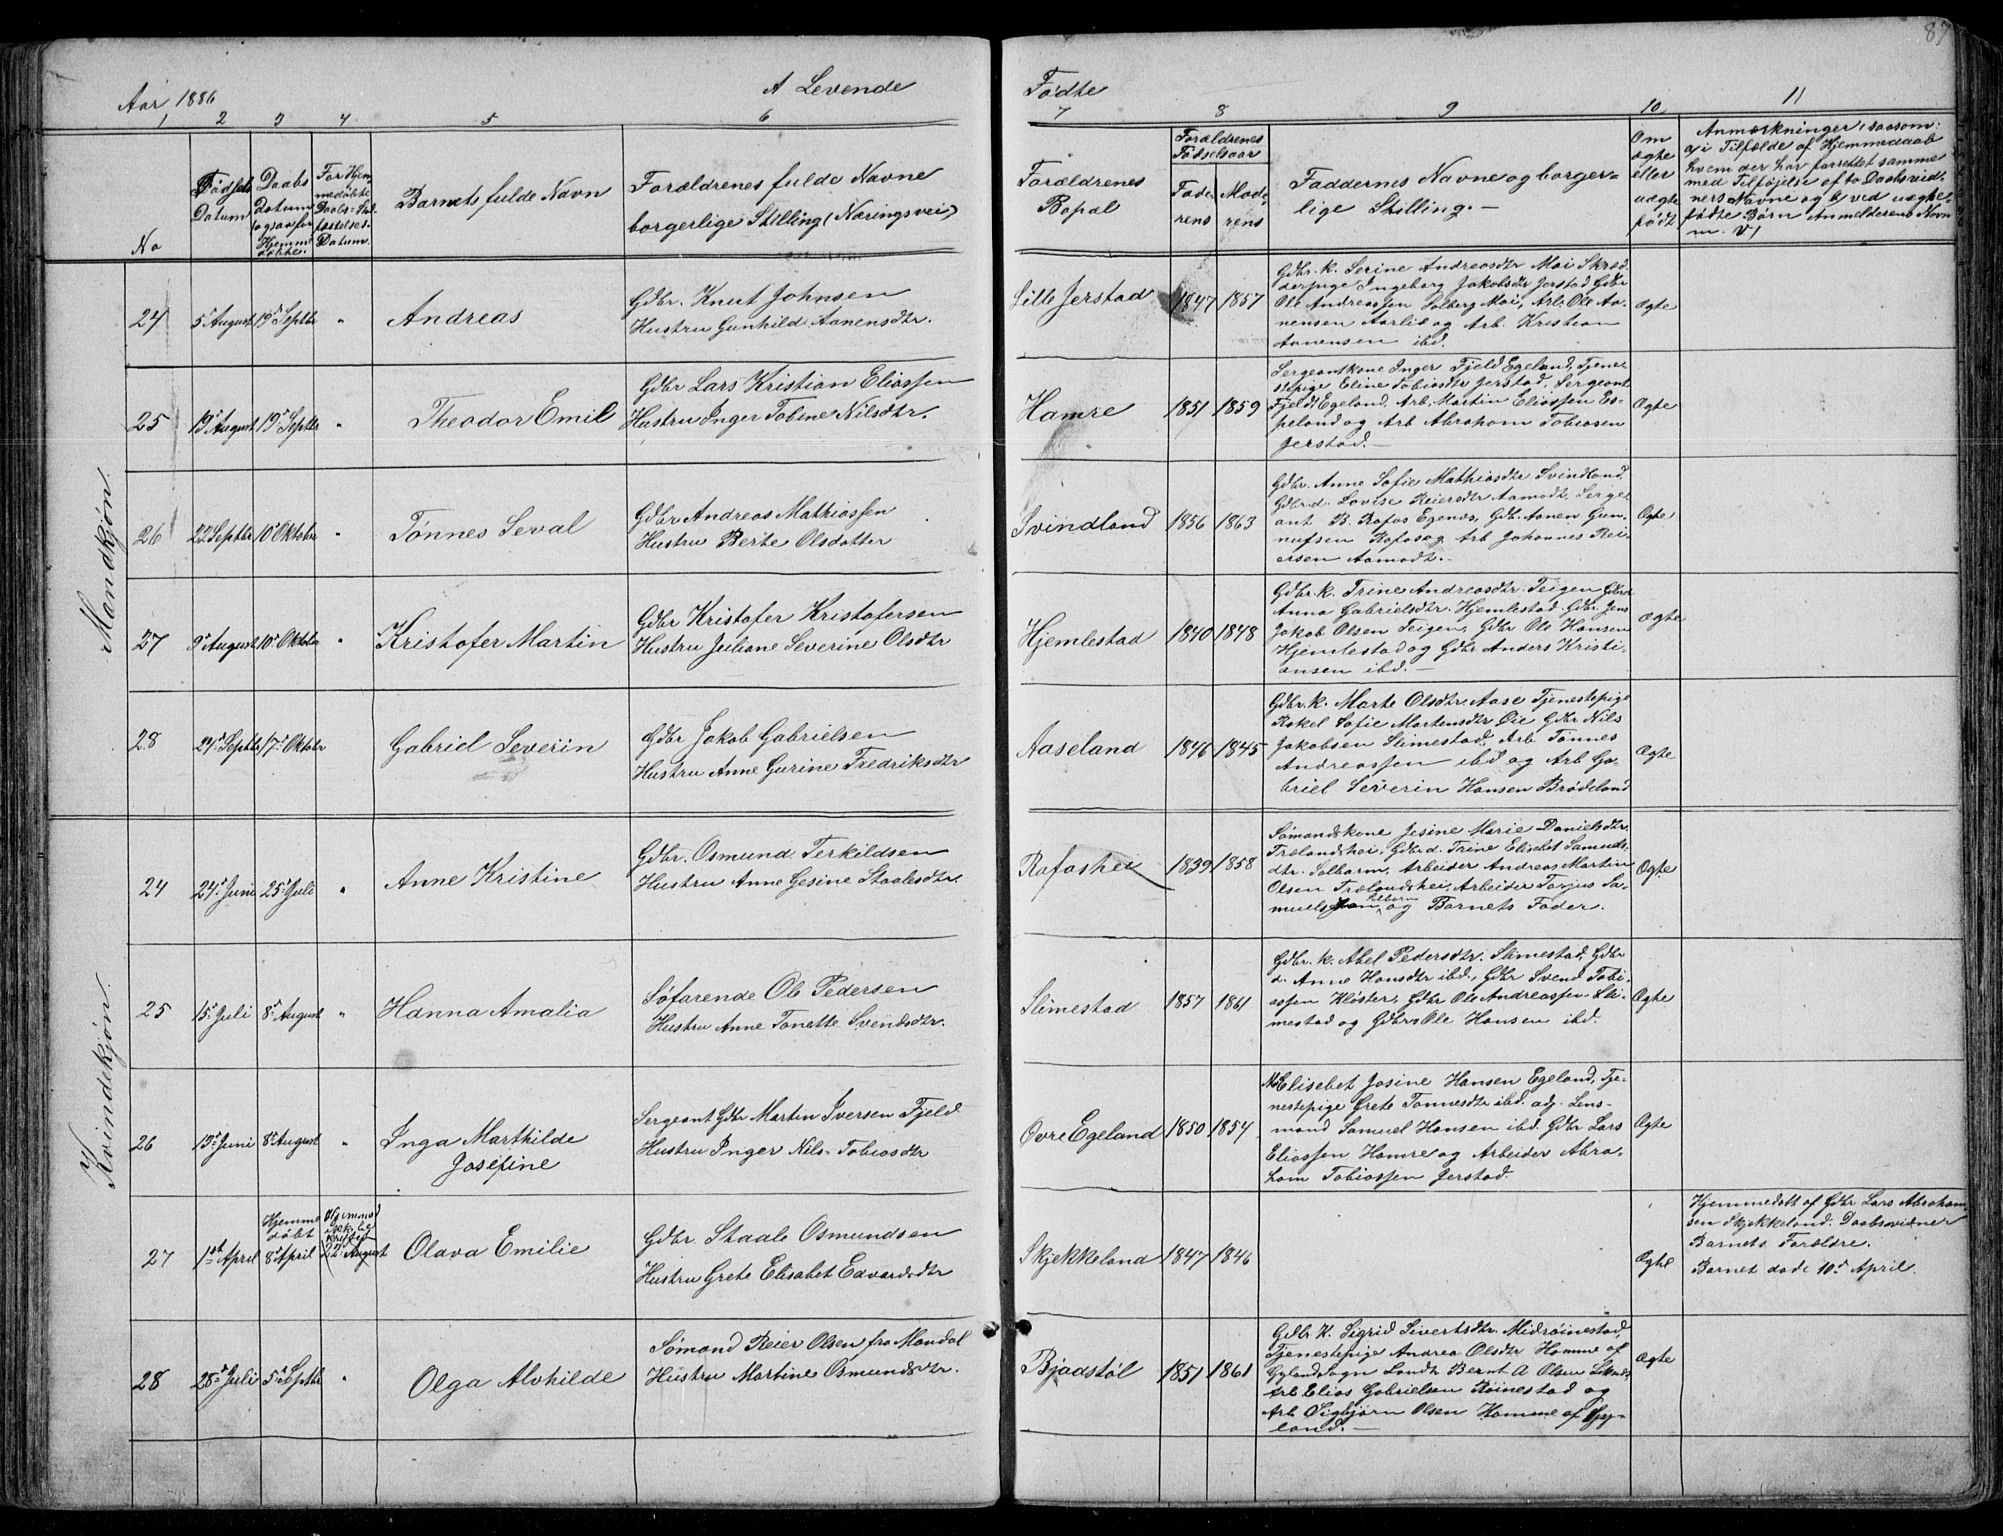 87
Aar 1886
A Levende
Fødte
1 2 3 4 5 6 7 8 9 10 11
No
Fødsels
Datum
Daabs
Datum
ogsaa for
Hjemme
døbte.
For Hjem
medøbte
Daabs-Stad
fæstelses-
Datum.
Barnets fulde Navn
Forældrenes fulde Navne
borgerlige Stilling (Næringsvei)
Forældrenes
Bopæl
Forældrenes
Fødselsaar
Fade-
rens
Mode-
rens
Faddernes Navne og borger-
lige Stilling.-
Om
ægte
eller
uægte
født
Anmærkninger, saasom:
a, i Tilfælde af Hjemmedaab
hvem der har forrettet samme
med Tilføjelse af to Daabsvid-
ners Navne og b, ved uægte
fødte Børn Anmelderens Navn
m. V,
Mandkjøn.
24 5 August 19 Septbr " Andreas
Gdbr. Knut Johnsen
Hustru Gunhild Aanensdtr.
Lille Jerstad 1847 1857
Gdbr. k. Serine Andreasdtr Moi Skræd-
derpige Ingeborg Jakobsdtr Jerstad Gdbr
Ole Andreassen Solberg Moi, Arb. Ole Aa-
nensen Aarli og Arb. Kristian
Aanensen ibd.
Ægte
25 19 August 19 Septbr " Theodor Emil
Gdbr Lars Kristian Eliassen
Hustru Inger Tobine Nilsdtr.
Hamre 1851 1859
Sergeantkone Inger Fjeld Egeland, Tjene-
stepige Eline Tobiasdtr Jerstad, Sergeant
Fjeld Egeland, Arb. Martin Eliassen Es-
peland og Arb Abraham Tobiasen
Jerstad.-
Ægte
26 22 Septbr 10 Oktober " Tønnes Seval
Gdbr Andreas Mathiassen
Hustru Berte Olsdatter
Svindland 1856 1863
Gdbr. Anne Sofie Mathiasdtr Svindland,
Gdbr.d. Lovise Reiersdtr Aamodt, Serge-
ant B. Rafos Egenæs, Gdbr. Aanen Gun-
nufsen Rafos og Arb Johannes Rei-
ersen Aamodt.-
Ægte
27 9 August 10 Oktober " Kristofer Martin
Gdbr Kristofer Kristofersen
Hustru Juliane Severine Olsdtr
Hjemlestad 1840 1848
Gdbr. k. Trine Andreasdtr. Teigen Gdbrd
Anna Gabrielsdtr. Hjemlestad Gdbr. Jens
Jakob Olsen Teigen, Gdbr Ole Hansen
Hjemlestad og Gdbr Anders Kristi-
ansen ibd.-
Ægte
28 24 Septbr 17 Oktober Gabriel Severin
Gdbr Jakob Gabrielsen
Hustru Anne Gurine Fredriksdtr
Aaseland 1846 1845
Gdbr. k. Marte Olsdtr. Aase Tjenestepige
Rakel Sofie Martensdtr Øie Gdbr Nils
Jakobsen Slimestad, Arb Tønnes
Andreassen ibd og Arb Ga-
briel Severin Hansen Brødeland
Ægte
Kvindekjøn.
24 24 Juni 25 Juli " Anne Kristine
Gdbr. Osmund Terkildsen
Hustru Anne Gesine Staalesdtr.
Rafoshei 1839 1858
Sømandskone Jesine Marie Danielsdtr.
Trælandshei, Gdbrd. Trine Eliset Samuels-
dtr. Solbarm, Arbeider Andreas Martin
Olsen Trælandshei, Arbeider Torjus Sa-
muelsen Solbarm og Barnets Fader.
Ægte
25 15 Juli 8 August " Hanna Amalia
Søfarende Ole Pedersen
Hustru Anne Tonette Svendsdtr.
Slimestad 1857 1861
Gdbr. k. Abel Pedersdtr. Slimestad, Gdbr
d. Anne Hansdtr ibd., Gdbr Svend Tobi-
assen Kløster, Gdbr Ole Andreassen Sli-
mestad og Gdbrs Ole Hansen ibd.
Ægte
26 13 Juni 8 August " Inga Marthilde
Josefine
Sergeant Gdbr Martin Iversen Fjeld
Hustru Inger Nils-Tobiasdtr
Øvre Egeland 1850 1854
Elisebet Josine Hansen Egeland, Tje-
nestepige Grete Tønnesdtr ibd. adj. Lens-
mand Samuel Hansen ibd. Gdbr Lars
Eliassen Hamre og Arbeider Abra-
ham Tobiassen Jerstad.
Ægte
27 1ste April
Hjemme
døbt
8 April
22 August
Olava Emilie
Gdbr. Staale Osmundsen
Hustru Grete Elisabet Edvardsdtr
Skjekkeland 1847 1846
Ægte
Hjemmedøbt af Gdbr Lars Abraham-
sen Skjekkeland. Daabsvidner
Barnets Forældre.
Barnet døde 10 April.
28 28 Juli 5 Septbr " Olga Alvhilde
Sømand Reier Olsen fra Mandal
Hustru Martine Osmundsdtr.
Bjaastøl 1851 1861
Gdbr. K. Sigrid Sivertsdtr. Midrøinestad,
Tjenestepige Andrea Olsdtr Homme af
Gylands Sogn Landh Bernt A Olsen
Arb Elias Gabrielsen Røinestad og
Arb Sigbjørn Olsen Homme af Gy-
land.-
Ægte